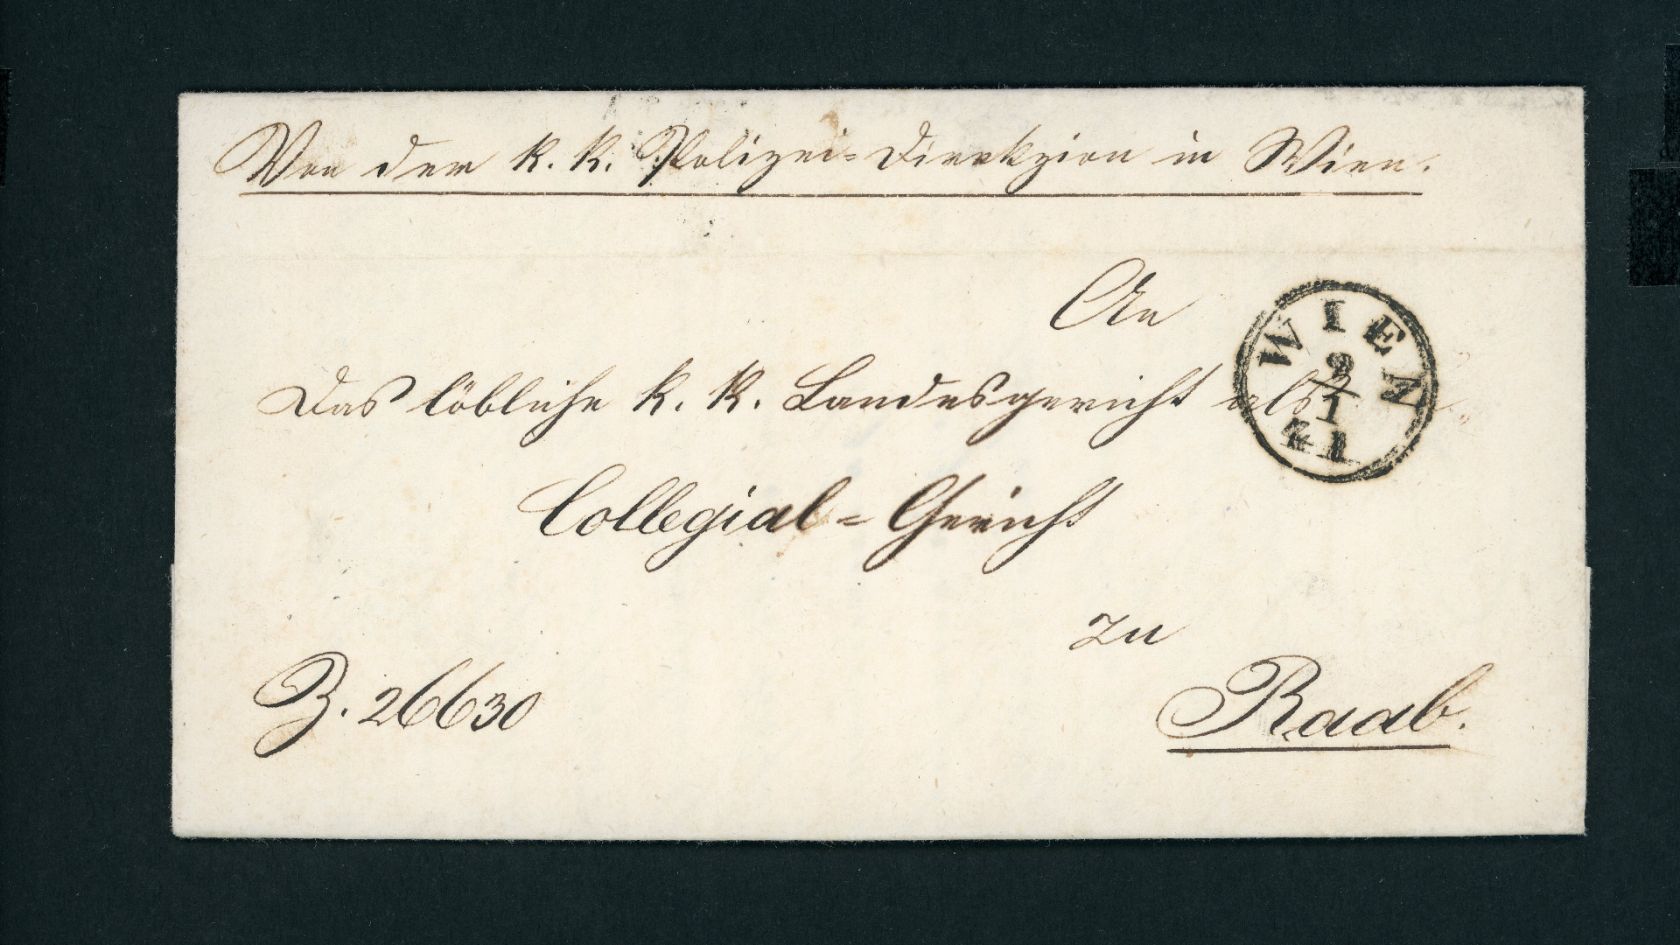 Von der k. k. Polizei=Direkzion in Wien.
An
Das löbliche k. k. Landesgericht als
Collegial=Gericht
zu
Raab.
Z. 26630
WIEN